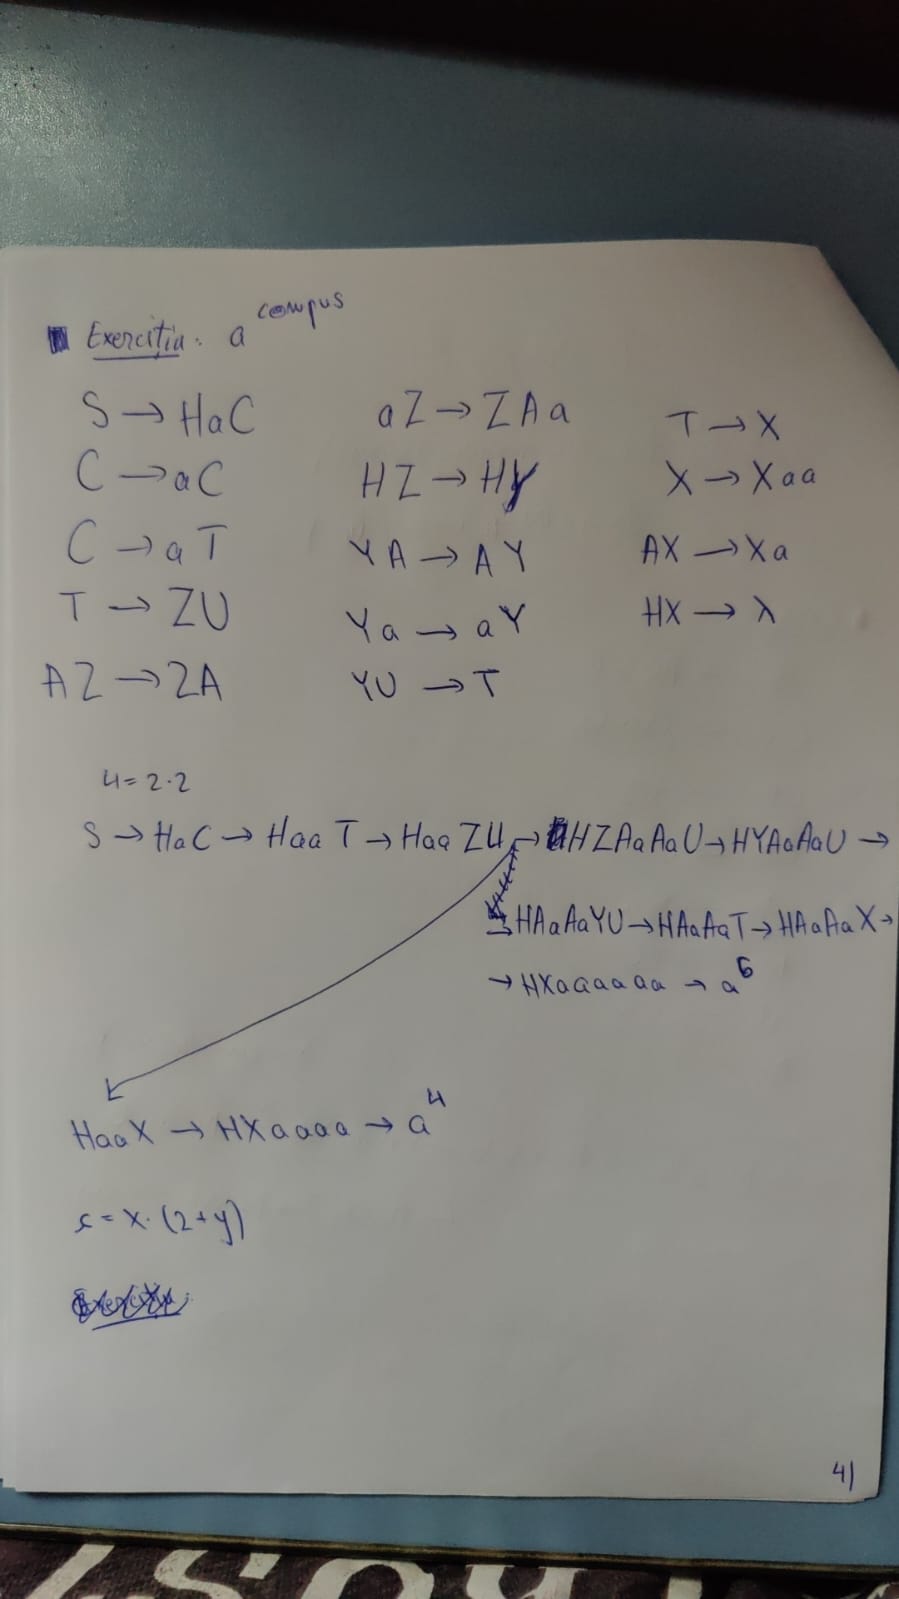 Exercițiu: a^compus
S → HaC
C → aC
C → aT
T → ZU
AZ → ZA
aZ → ZAa
HZ → HY
YA → AY
Ya → aY
YU → T
T → X
X → Xaa
AX → Xa
HX → λ
4 = 2·2
S → HaC → HaaT → HaaZU → HZAaAaU → HYAaAaU →
→ HAaAaYU → HAaAaT → HAaAaX →
→ HXaaaaaa → a^6
HaaX → HXaaaa → a^4
c = x·(2+y)
41